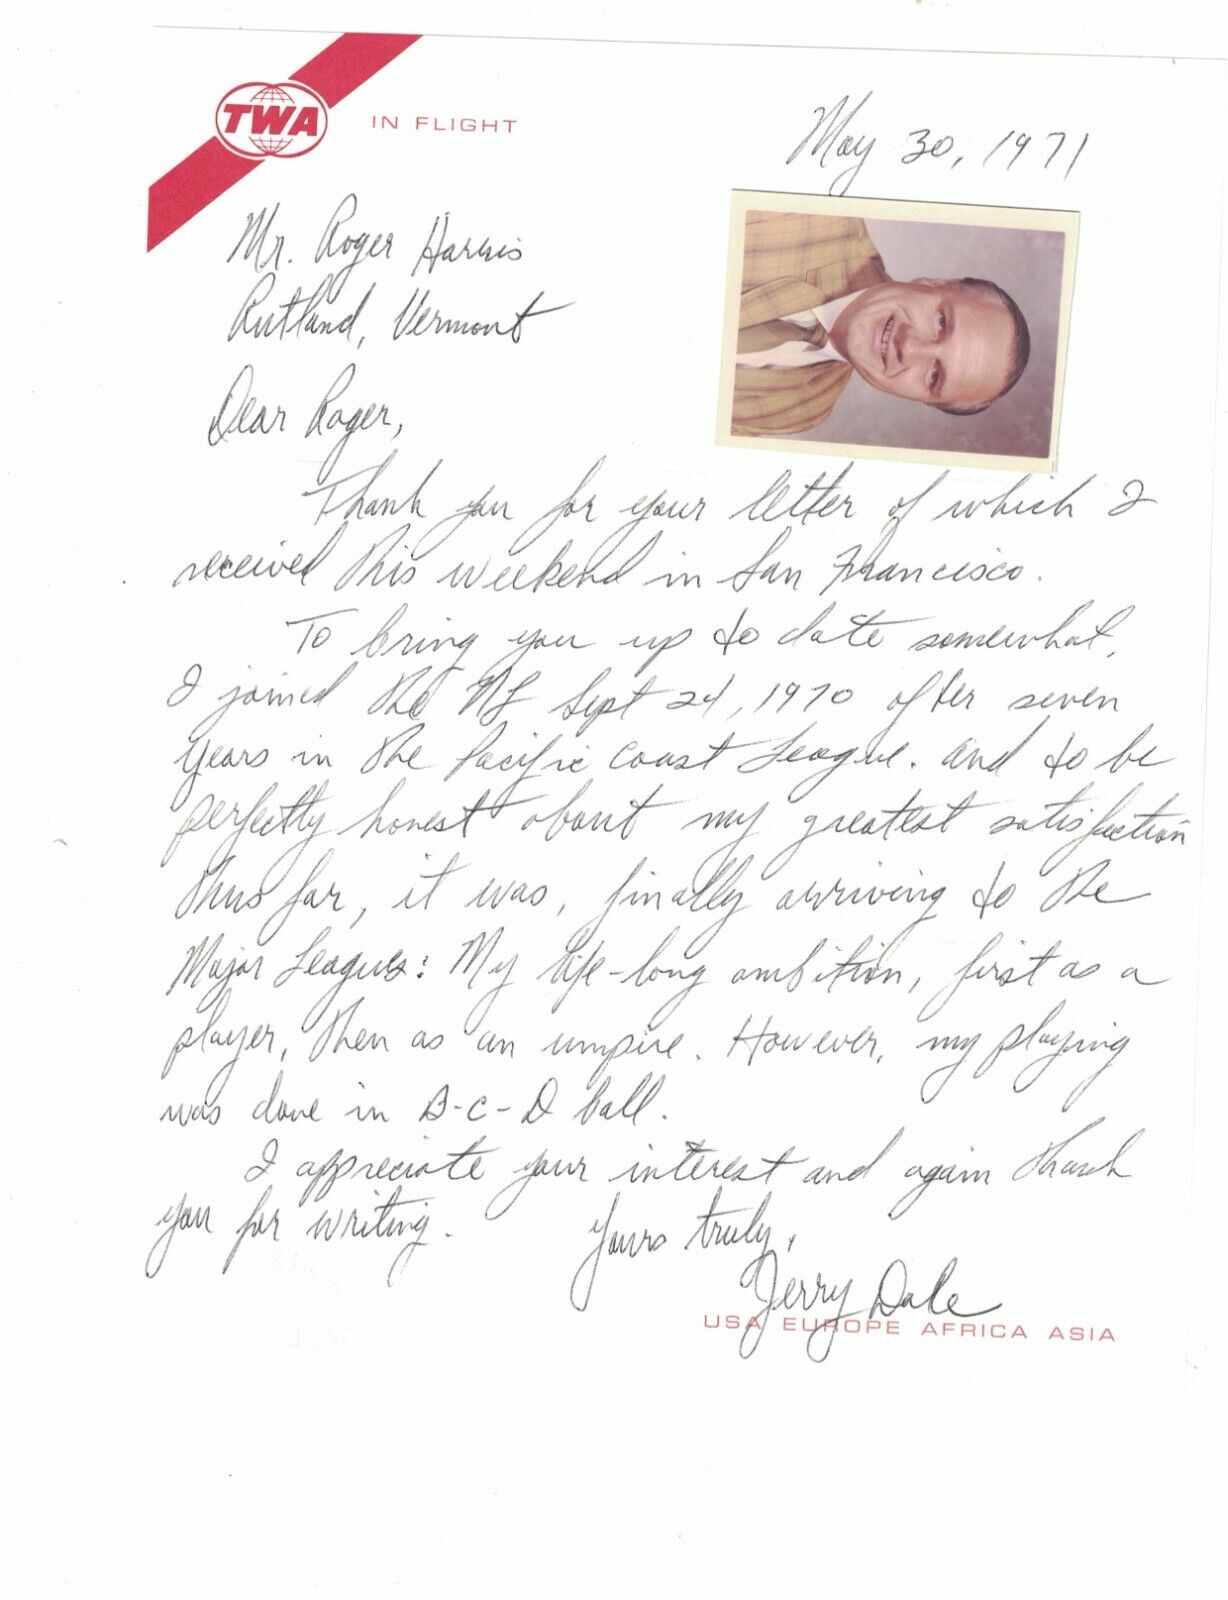 TWA
IN FLIGHT
May 30, 1971
Mr. Roger Harris
Rutland, Vermont
Dear Roger,
Thank you for your letter of which I
received this weekend in San Francisco.
To bring you up to date somewhat,
I joined the NL Sept 24, 1970 after seven
years in the Pacific Coast League. And to be
perfectly honest about my greatest satisfaction
thus far, it was, finally arriving to the
Major Leagues: My life-long ambition, first as a
player, then as an umpire. However, my playing
was done in B-C-D ball.
I appreciate your interest and again thank
you for writing.
Yours truly,
Jerry Dale
USA EUROPE AFRICA ASIA